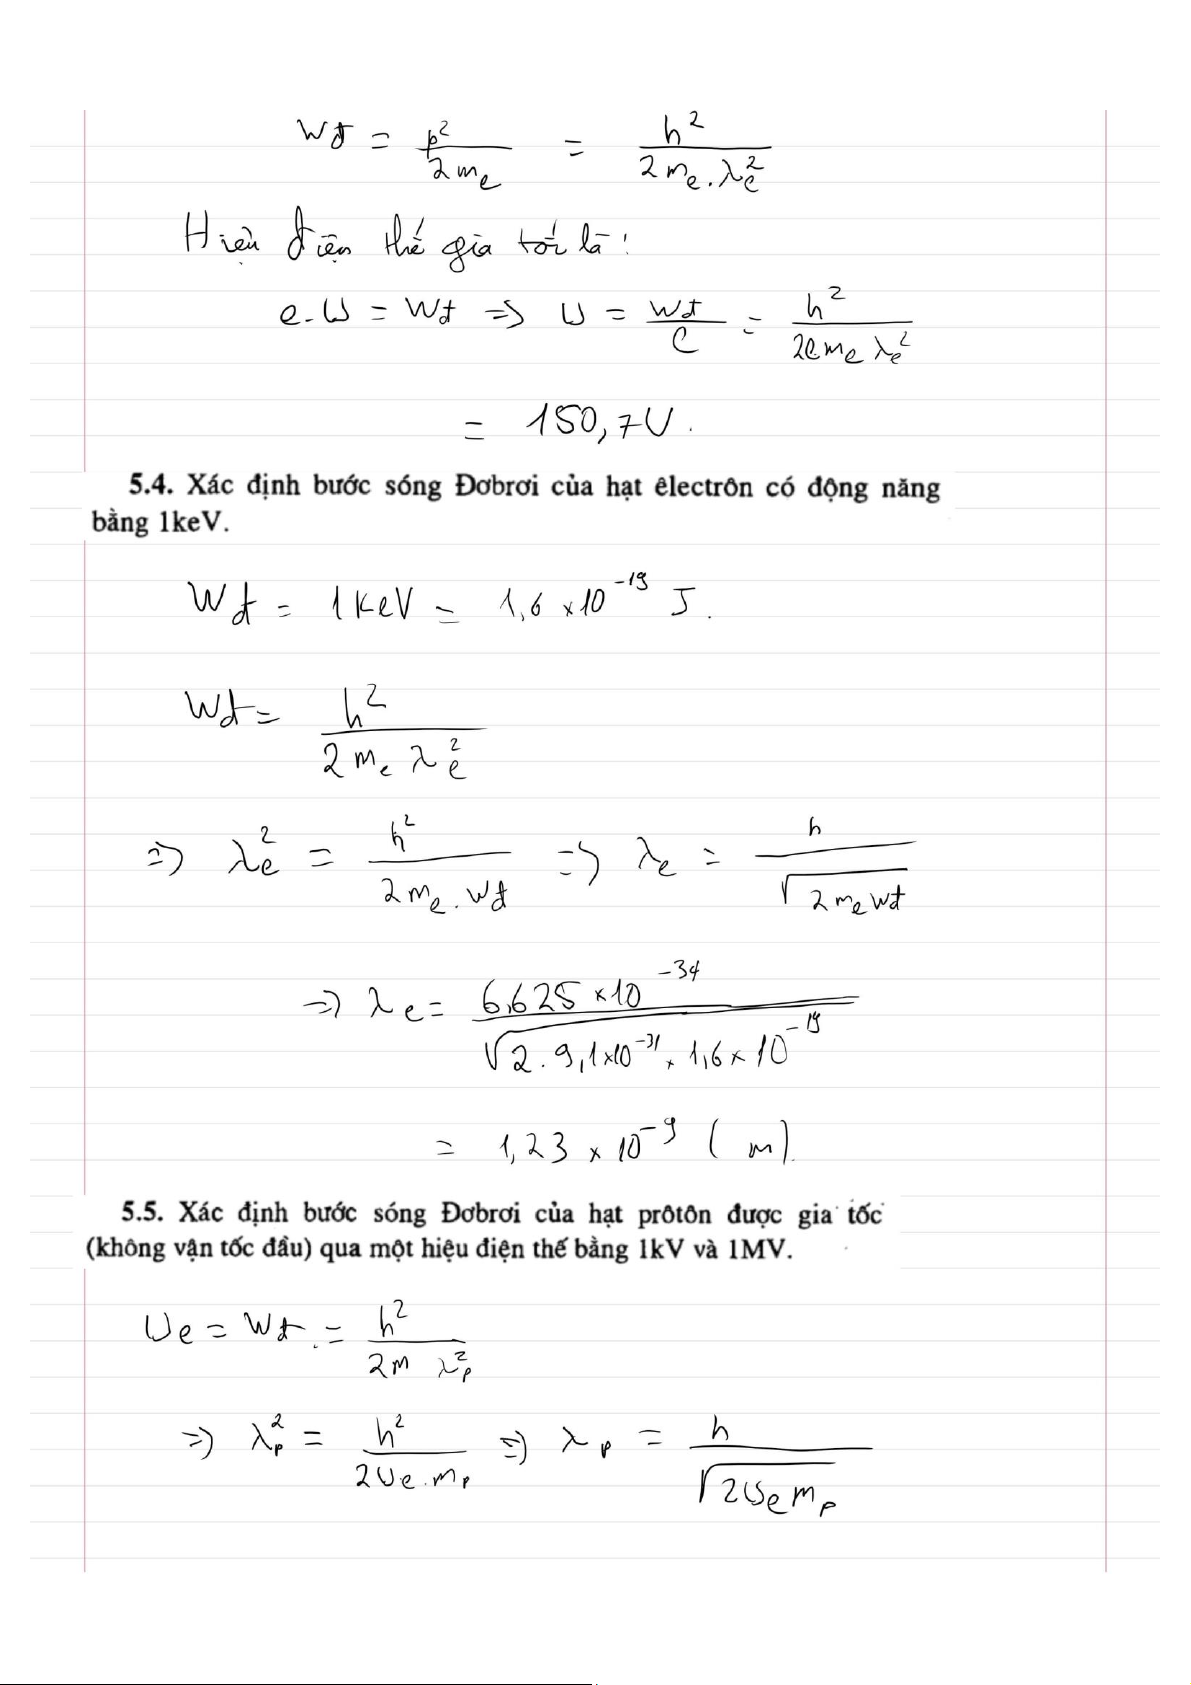 Wđ = p²/2mₑ = h²/2mₑ.λₑ²
Hiệu điện thế gia tốc là:
e.U = Wđ => U = Wđ/e = h²/2emₑλₑ²
= 150,7V.
5.4. Xác định bước sóng Đơbrơi của hạt êlectrôn có động năng
bằng 1keV.
Wđ = 1KeV = 1,6 x10⁻¹⁹ J.
Wđ = h²/2mₑλₑ²
=> λₑ² = h²/2mₑ.Wđ => λₑ = h/√2mₑWđ
=> λₑ = 6,625 x10⁻³⁴/√2.9,1x10⁻³¹x1,6x10⁻¹⁹
= 1,23 x 10⁻⁹ (m).
5.5. Xác định bước sóng Đơbrơi của hạt prôtôn được gia tốc
(không vận tốc đầu) qua một hiệu điện thế bằng 1kV và 1MV.
Ue = Wđ = h²/2m λₚ²
=> λₚ² = h²/2Ue.mₚ => λₚ = h/√2Uemₚ